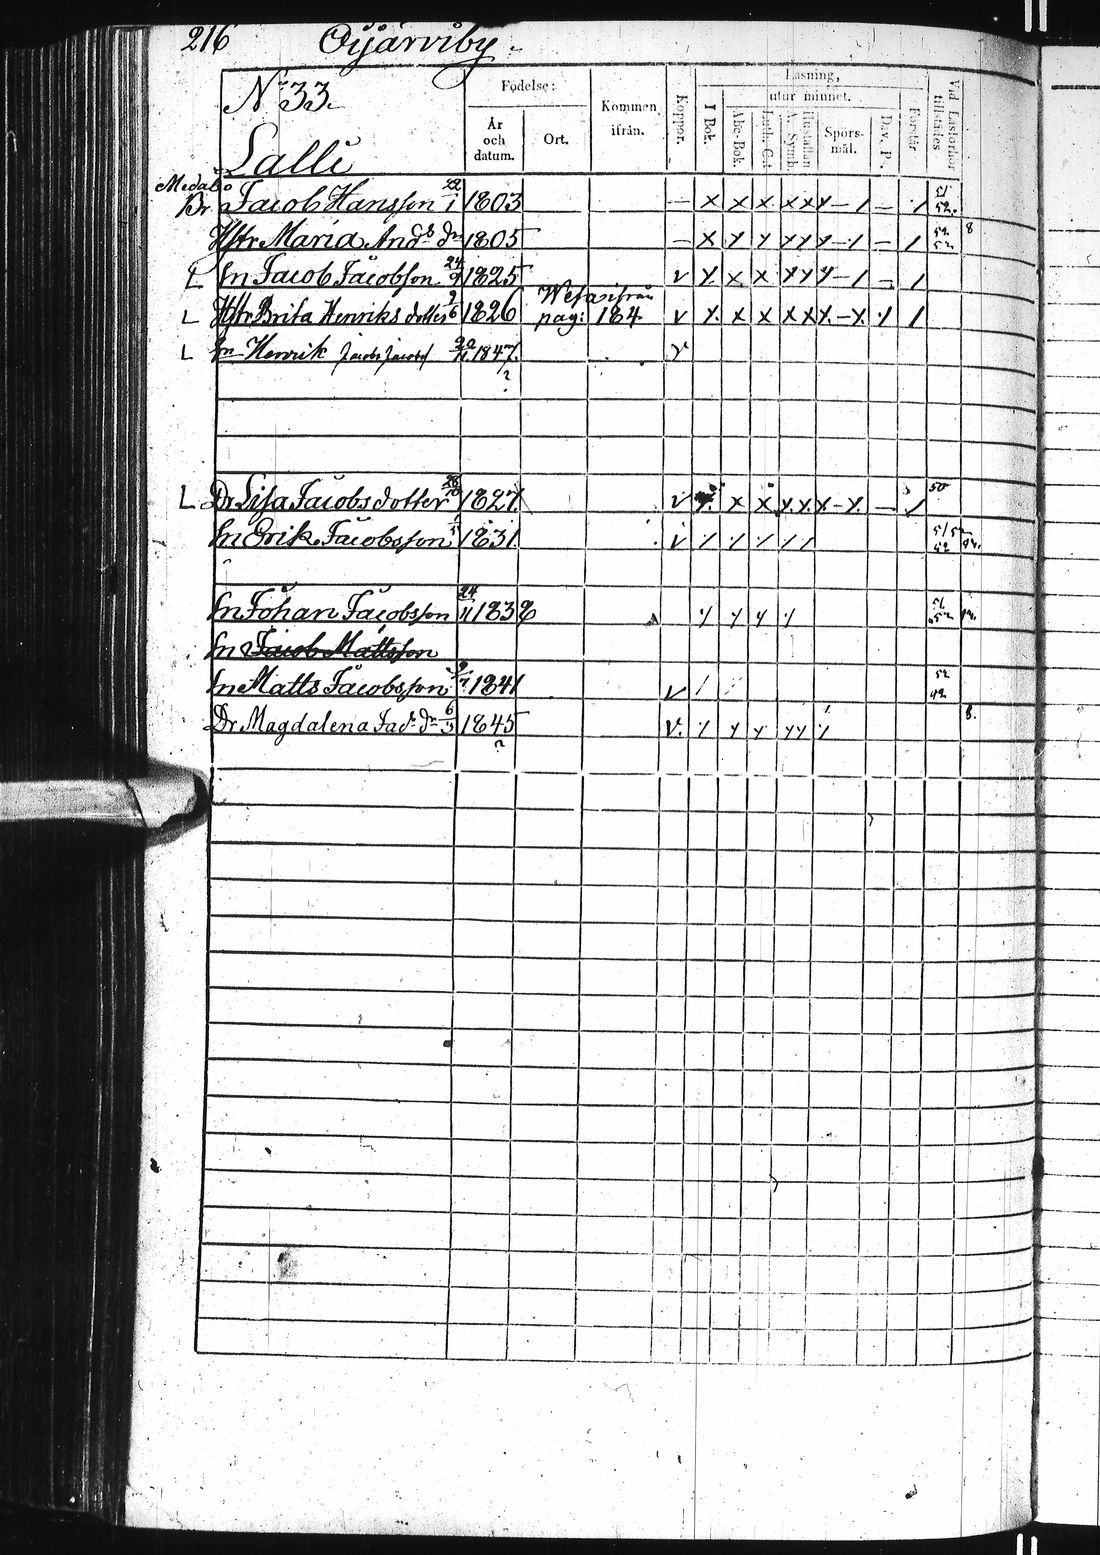 216 Oijärviby.
No 33.
Lalli
Födelse:
År och datum.
Ort.
Kommen ifrån.
Koppor.
Läsning,
I Bok.
utur minnet.
Abc-Bok.
Luth. C:t
Hustaflan A. Symb.
Spörsmål.
Dav. P.
Förstår
Vid Läsförhör tillstädes
Br Jacob Hansson 22/1 1803 — x x x x x x – 1 — 1 51 52.
Hstr Maria And:s dr 1805 — x y y y y y – 1 – 1 52 8
L Sn Jacob Jacobsson 24/9 1825 v y. x x y y y – 1 – 1
L Hstr Brita Henriks dotter 9/6 1826 Wefar ifrån pag: 184 v y. x x x x y. – y. 1 1
L Sn Henrik Jacobs Jacobss 1847. v
?
L Dr Lisa Jacobsdotter 1827 v y. x x y. y. x – y. — 1 50
Sn Erik Jacobsson 1831 v / / / / /
Sn Johan Jacobsson 24/11 1838 y y y y
Sn Jacob Mattsson
Sn Matts Jacobsson 1841 v / 52
Dr Magdalena Jac:s dr 6/3 1845 v. y y y y y y 8.
?